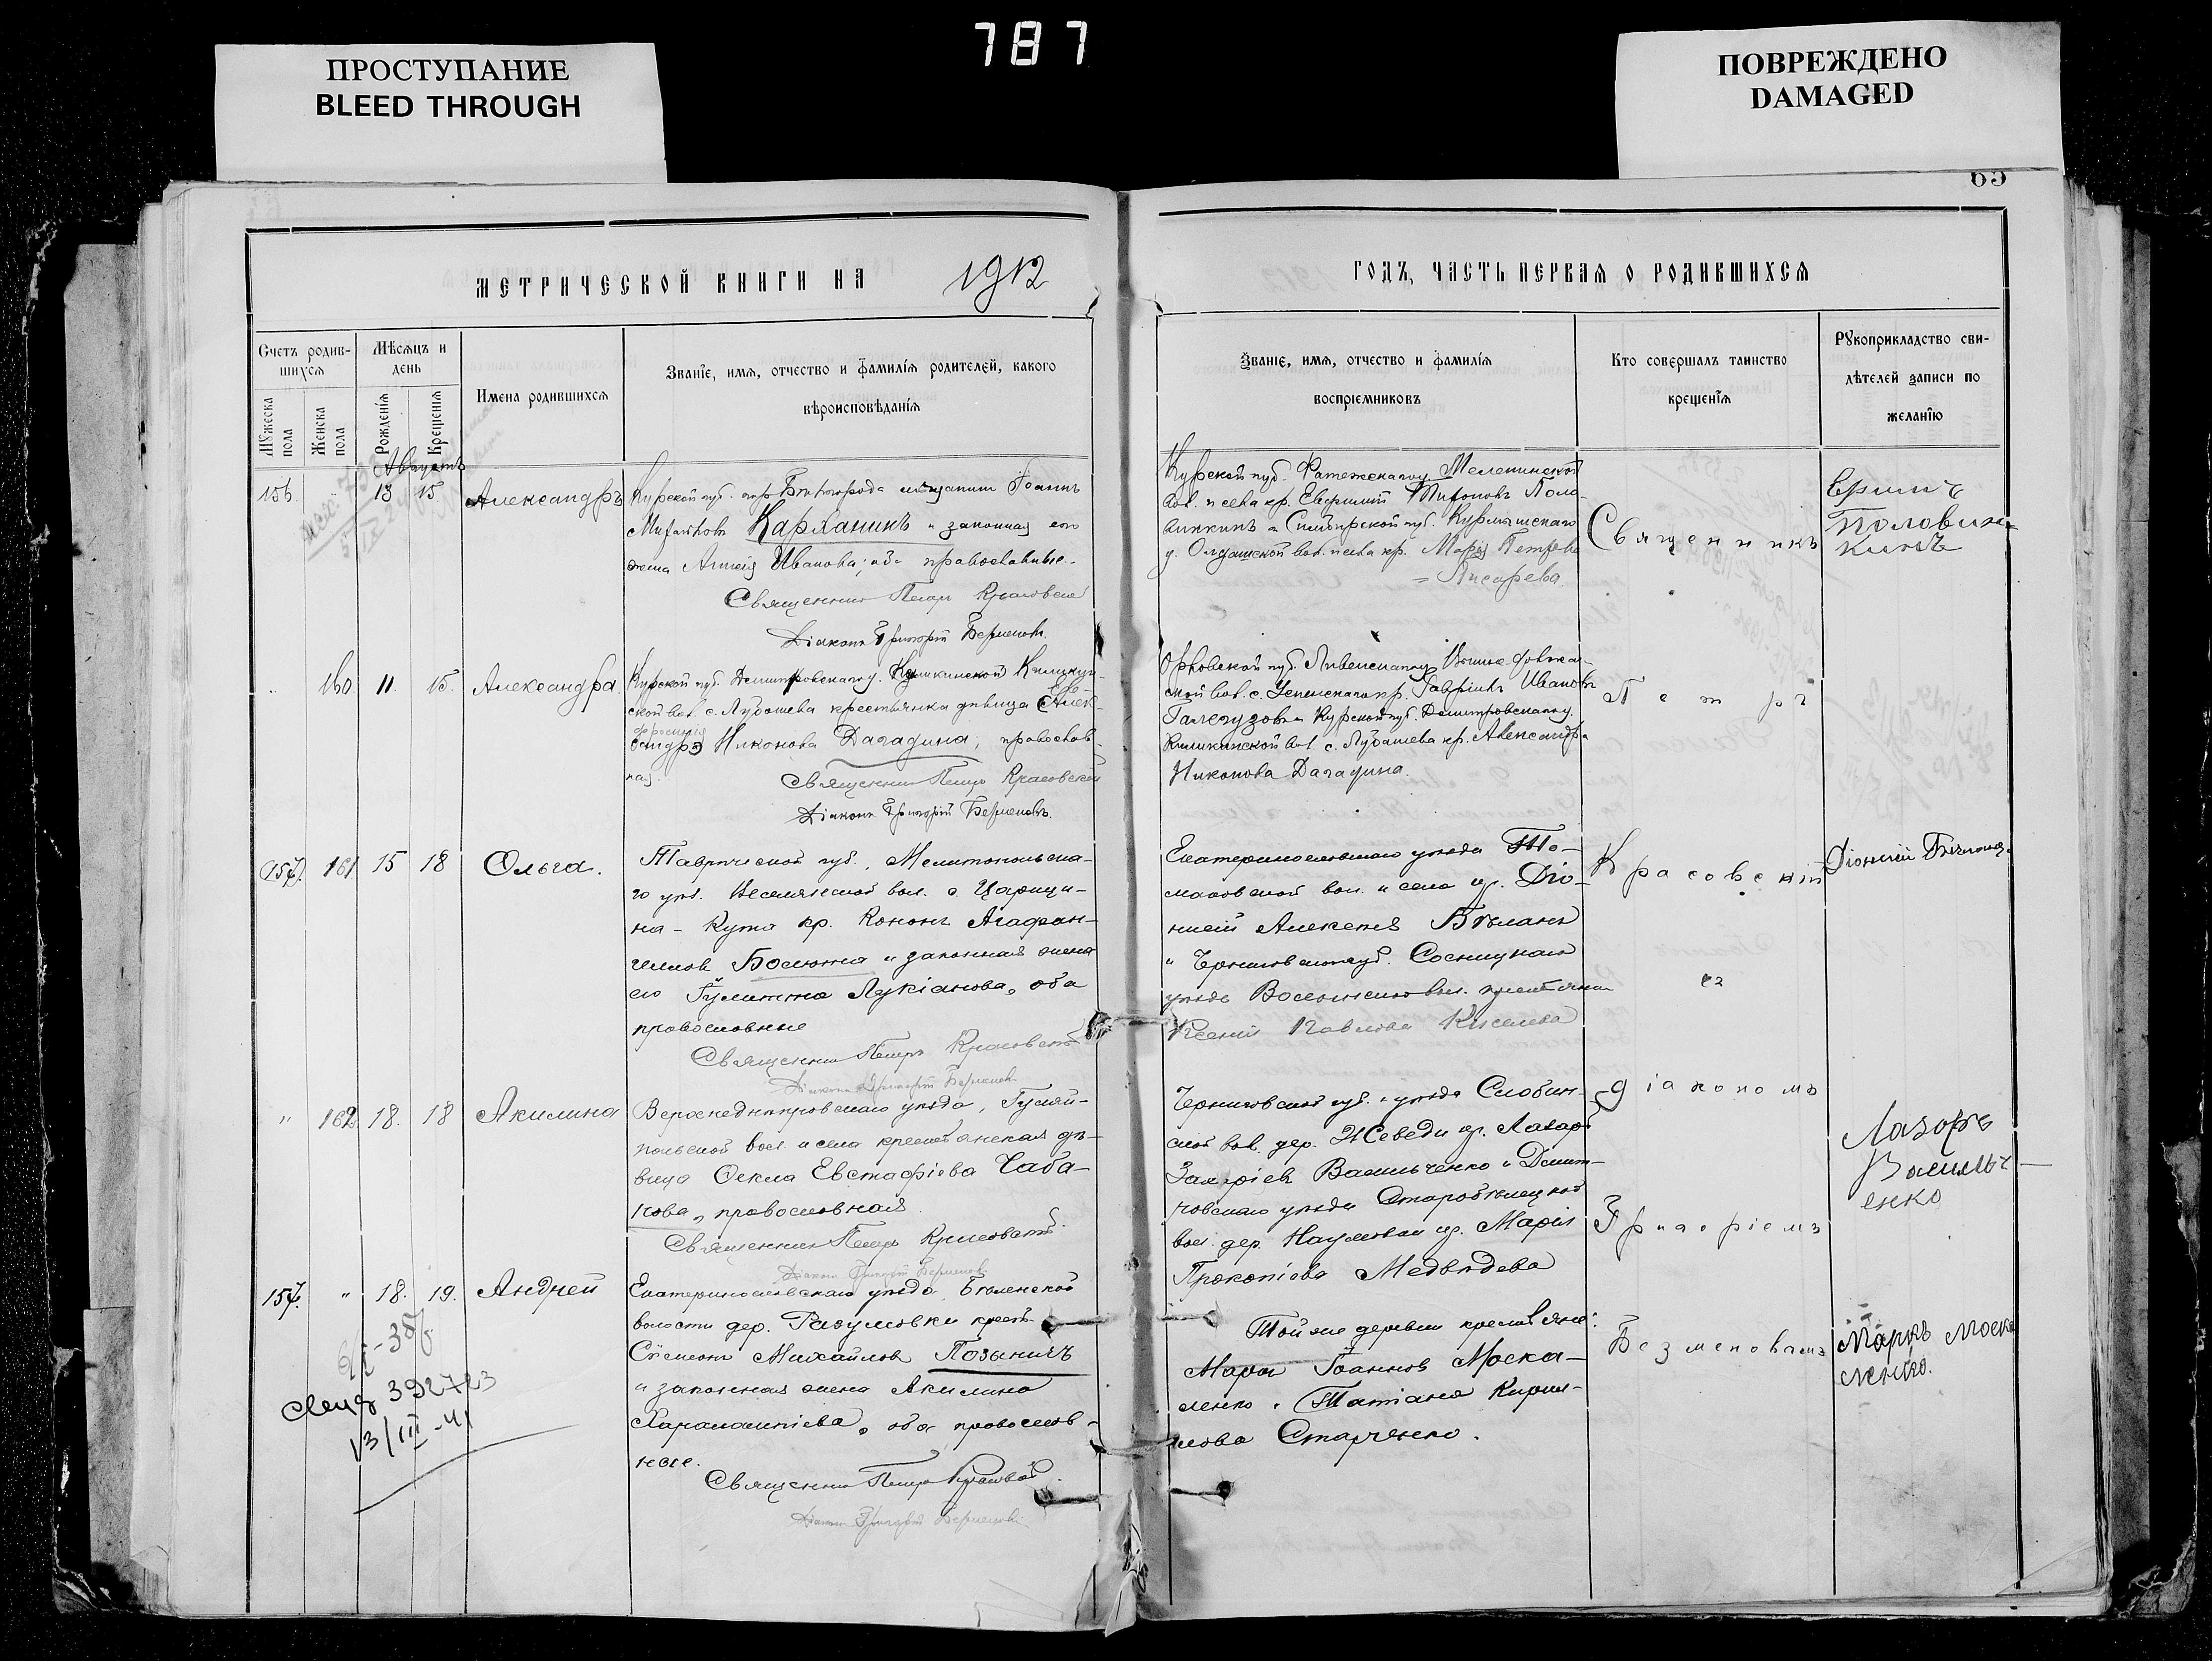 787
ПРОСТУПАНИЕ
BLEED THROUGH
ПОВРЕЖДЕНО
DAMAGED
65
МЕТРИЧЕСКОЙ КНИГИ НА 1912
ГОДЪ, ЧАСТЬ ПЕРВАЯ О РОДИВШИХСЯ
Счетъ родив-
шихся
Мѣсяцъ и
день
Мужеска
пола
Женска
пола
Рожденія
Крещенія
Имена родившихся
Званіе, имя, отчество и фамилія родителей, какого
вѣроисповѣданія
Званіе, имя, отчество и фамилія
воспріемниковъ
Кто совершалъ таинство
крещенія
Рукоприкладство сви-
дѣтелей записи по
желанію
Августъ
156. 13 15. Александръ
Курской губ. мѣщанинъ Іоаннъ
Карманинъ и законная его
жена Ивановна; оба православные.
Священникъ Петръ Красовскій
Діаконъ Григорій Безменовъ.
Курской губ. Фатежскаго у.
вол. и села кр. Поло-
винкинъ и Симбирской губ. Курмышскаго
у. вол. и села кр. Петрова
Писарева
Священникъ
Половин-
кинъ
160 11. 15. Александра
Курской губ. Дмитровскаго у.
ской вол. с. Лубошева крестьянка дѣвица
Никонова Дагадина, православ-
ная.
Священникъ Петръ Красовскій
Діаконъ Григорій Безменовъ.
Орловской губ. Ливенскаго у.
ской вол. с. Успенскаго кр. Гавріилъ Ивановъ
и Курской губ. Дмитровскаго у.
вол. с. Лубошева кр. Александра
Никонова Дагадина.
Петръ
157. 161 15 18 Ольга.
Таврической губ., Мелитопольска-
го уѣз. Веселянской вол. с. Царицы-
на-Кута кр. Кононъ Агафан-
гиловъ и законная жена
его Гулитта Лукіанова, оба
православные
Священникъ Петръ Красовскій
Діаконъ Григорій Безменовъ
Екатеринославскаго уѣзда То-
маковской вол. и села кр. Діо-
нисій Алексѣевъ Бѣланъ
и Черниговской губ. Сосницкаго
уѣзда вол. крестьянка
Ксенія Павлова Киселева
Красовскій
съ
Діонисій
" 162. 18. 18 Акилина
Верхнеднѣпровскаго уѣзда, Гуляй-
польской вол. и села крестьянская дѣ-
вица Ѳекла Евстафіева Чаба-
нова, православная.
Священникъ Петръ Красовскій
Діаконъ Григорій Безменовъ
Черниговской губ. и уѣзда Слобин-
ской вол. дер. Жеведи кр. Лазарь
Захаріевъ Васильченко и Дмит-
ровскаго уѣзда
вол. дер. Наумовки кр. Марія
Прокопіева Медвѣдева
діакономъ
Григоріемъ
Лазорь
Василь-
енко
157. " 18. 19. Андрей
Екатеринославскаго уѣзда, Бѣленской
волости дер. Разумовки крест.
Сѵмеонъ Михайловъ Позыничъ
и законная жена Акилина
Харалампіева, оба православ-
ные.
Священникъ Петръ Красовскій.
Діаконъ Григорій Безменовъ
392723
13/III-41
Той же деревни крестьяне:
Маркъ Іоанновъ Моска-
ленко и Татіана Кирил-
лова Старченко.
Безменовымъ
Маркъ Моска
ленко.